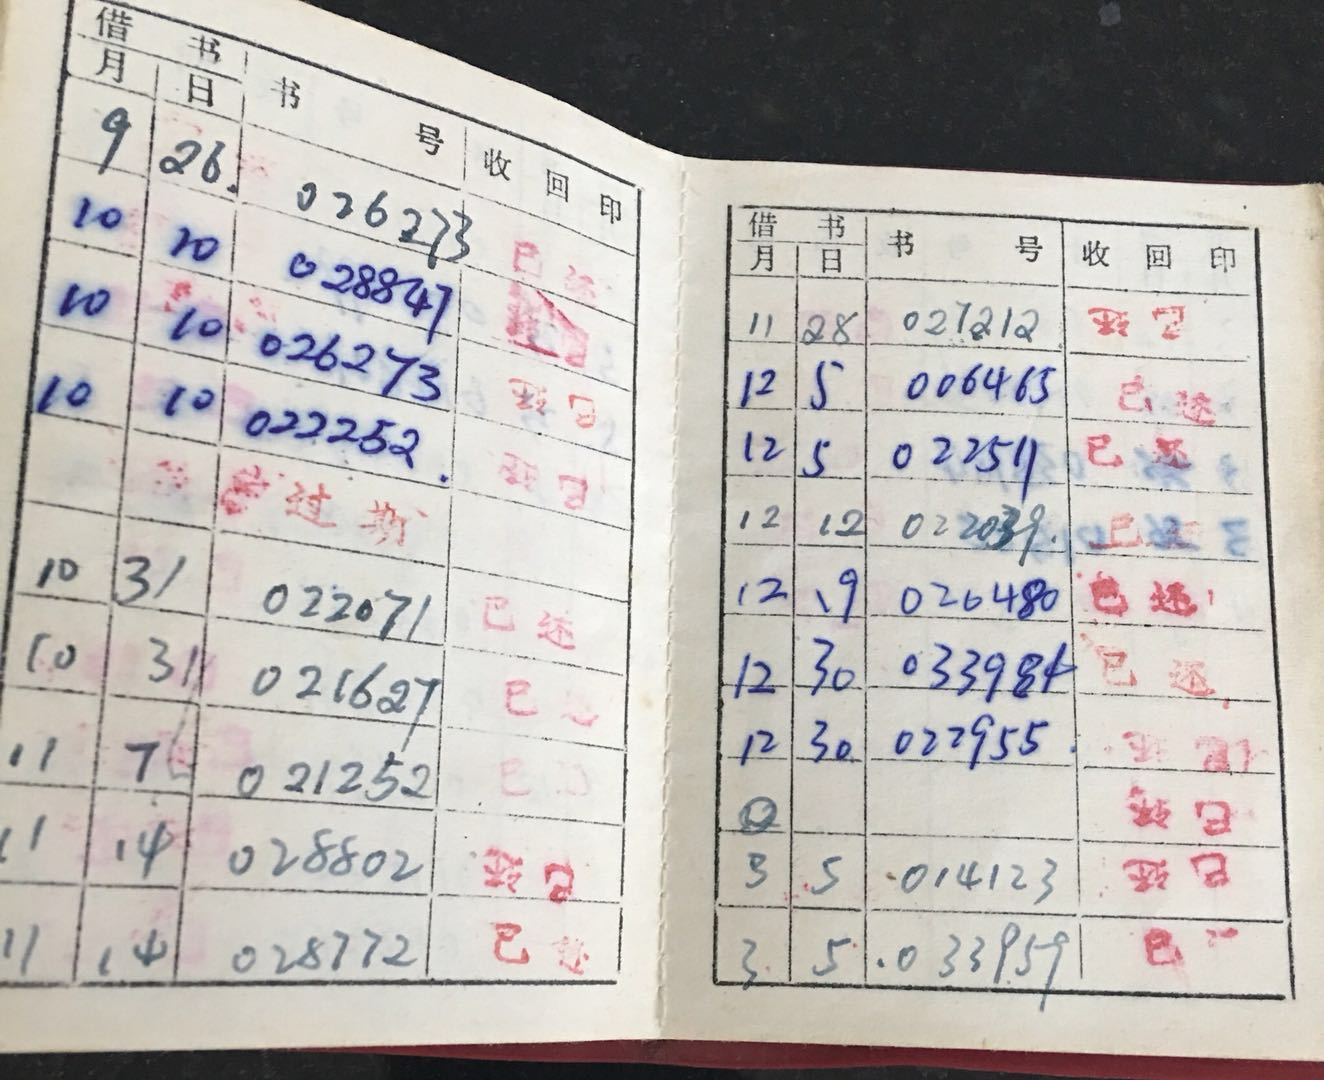 借 书 书 号 收 回 印
月 日
9 26. 026273 已 还
10 10 028847
10 10 026273 已还
10 10 022252. 已还
过期
10 31 022071 已 还
10 31 021627 已 还
11 7 021252 已
11 14 028802 已还
11 14 028772 已 还
借 书 书 号 收 回 印
月 日
11 28 027212 已还
12 5 006465 已还
12 5 022511 已 还
12 12 022039. 已
12 19 026480 已 还
12 30 033984 已 还
12 30 022955. 还
已还
3 5 014123 已还
3 5 033959 已